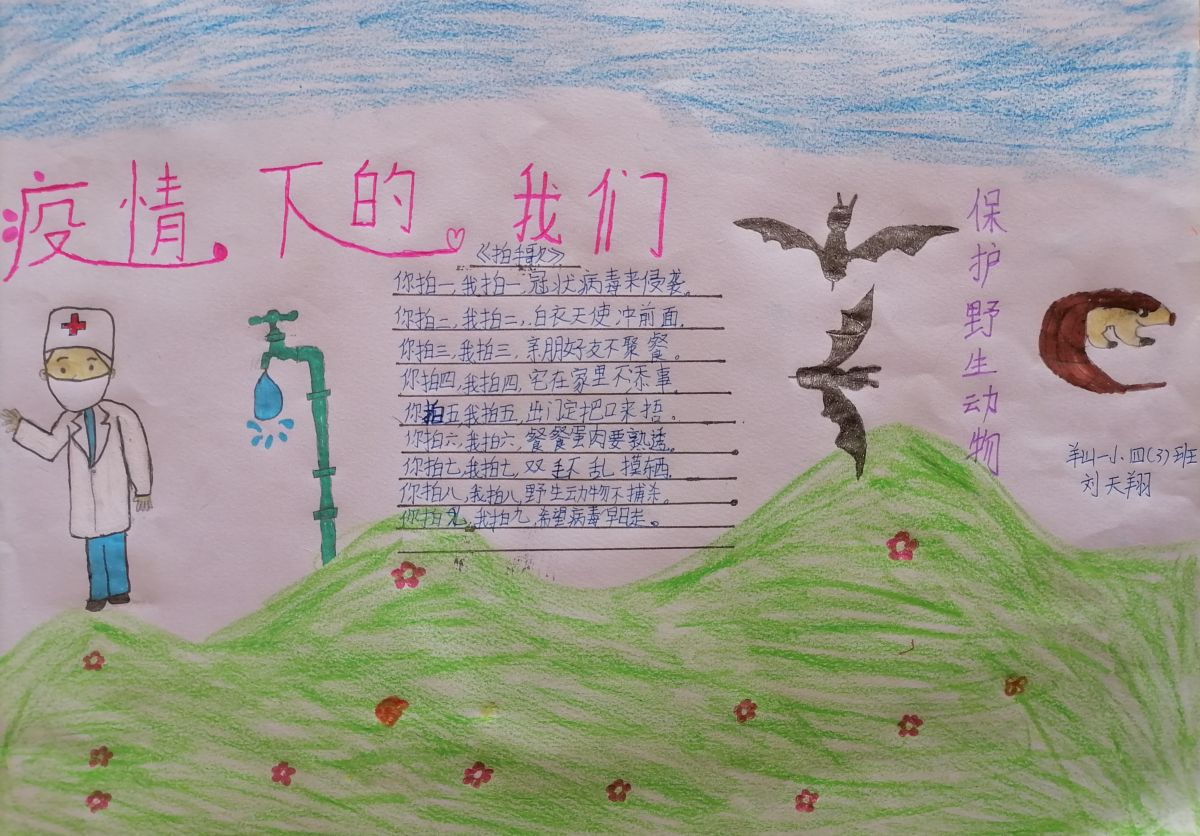 疫情下的我们
《拍手歌》
你拍一,我拍一,冠状病毒来侵袭。
你拍二,我拍二,白衣天使冲前面。
你拍三,我拍三,亲朋好友不聚餐。
你拍四,我拍四,宅在家里不添事。
你拍五,我拍五,出门定把口来捂。
你拍六,我拍六,餐餐蛋肉要熟透。
你拍七,我拍七,双手不乱摸
你拍八,我拍八,野生动物不捕杀。
你拍九,我拍九,希望病毒早日走。
保护野生动物
羊山一小四(3)班
刘天翔